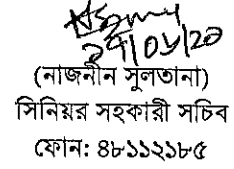 (নাজনীন সুলতানা)
সিনিয়র সহকারী সচিব
ফোন: ৪৮১১২১৮৫